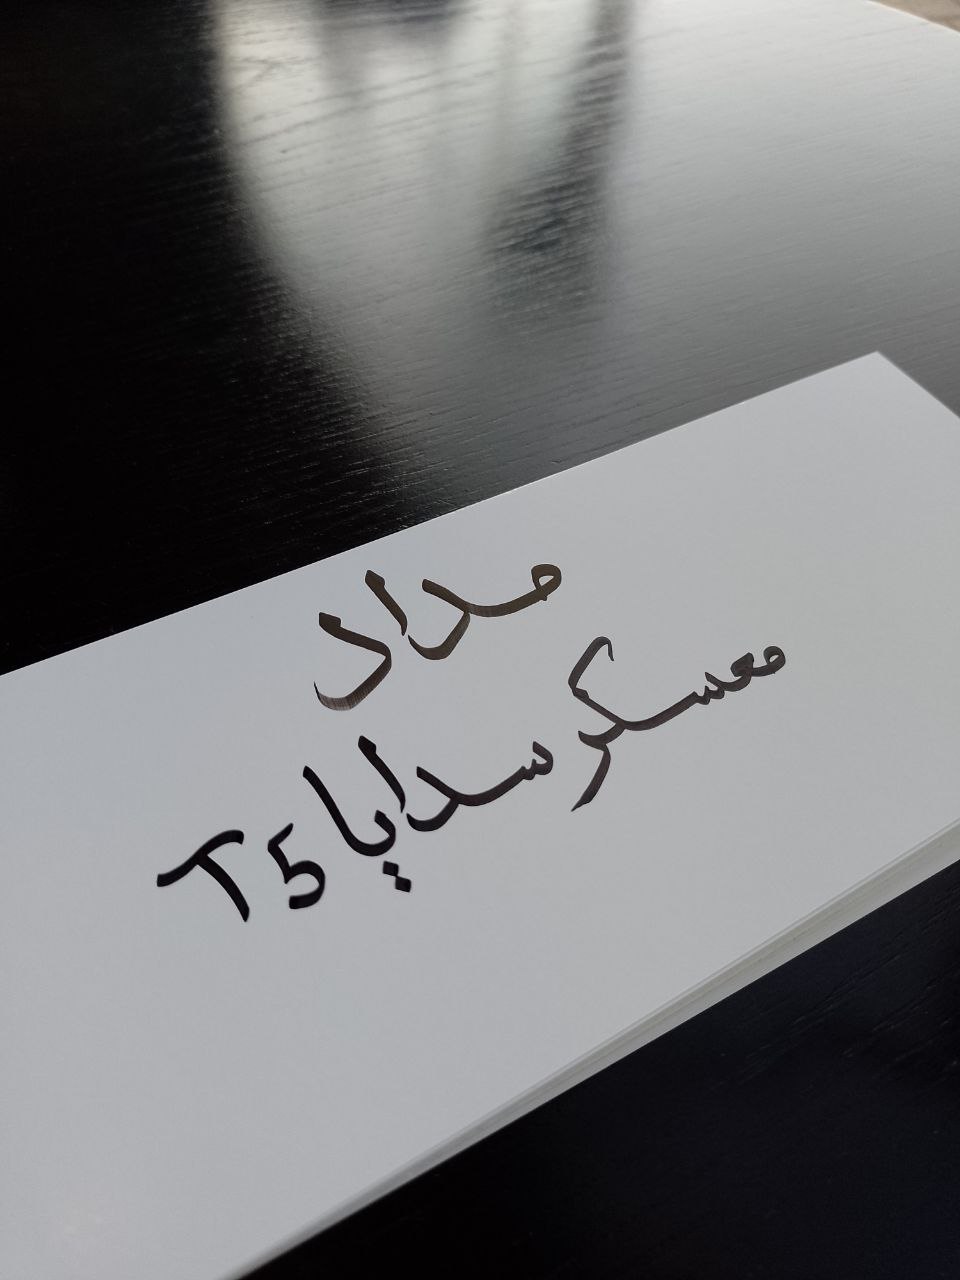 مداد
معسكر سدايا T5